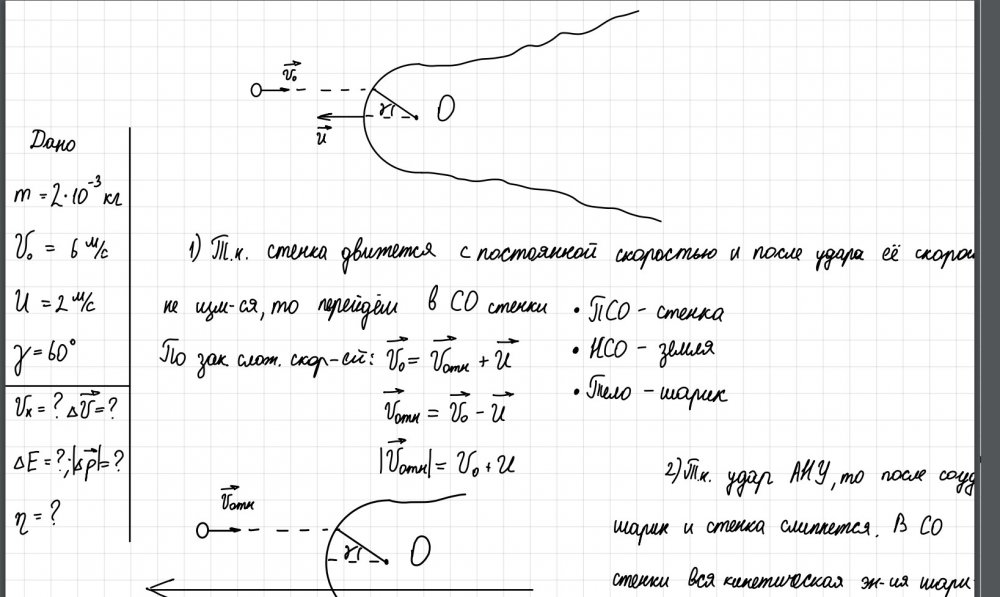 v₀
γ
O
u
Дано
m = 2·10⁻³ кг
v₀ = 6 м/с
u = 2 м/с
γ = 60°
vₓ = ? Δv = ?
ΔE = ?; |Δp| = ?
η = ?
1) Т.к. стенка движется с постоянной скоростью и после удара её скорос
не изм-ся, то перейдём в СО стенки
По зак слож. скор-ей: v₀ = vотн + u
vотн = v₀ - u
|vотн| = v₀ + u
• ПСО - стенка
• НСО - земля
• Тело - шарик
vотн
γ
O
2) Т.к. удар АНУ, то после соуд
шарик и стенка слипнется. В СО
стенки вся кинетическая эн-ия шари